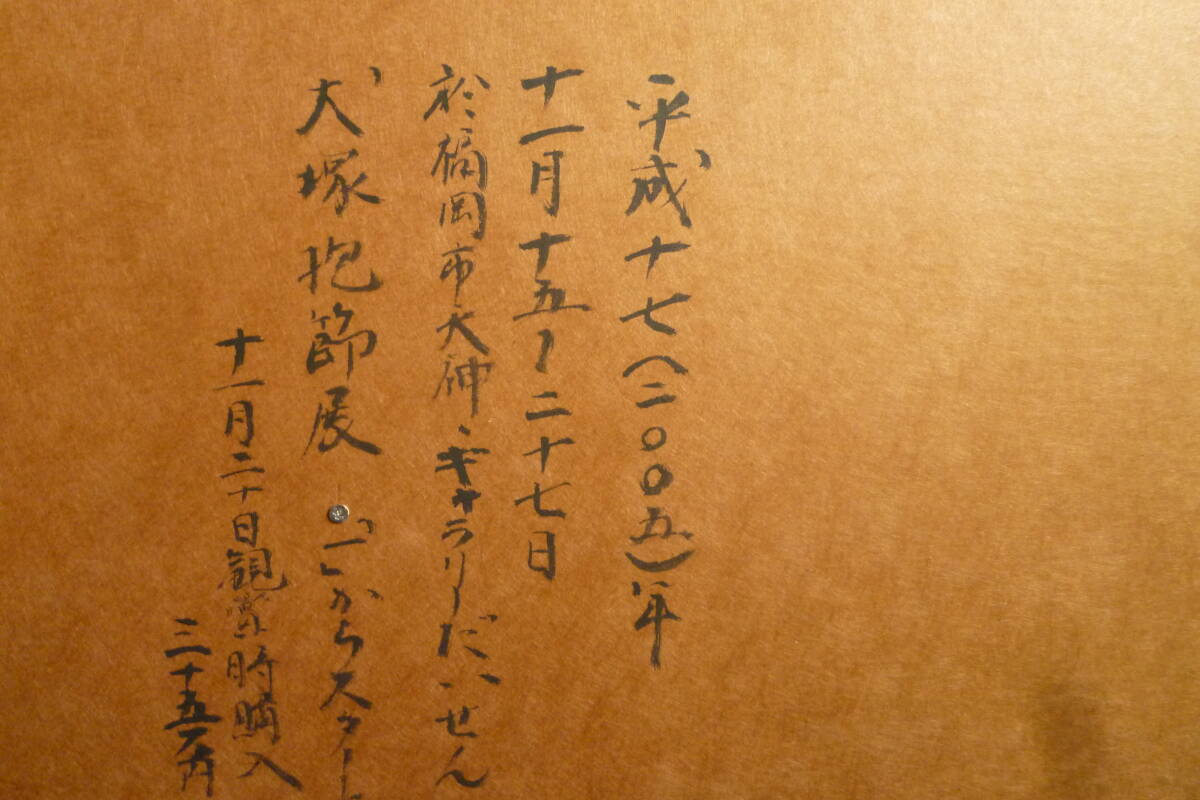 平成十七(二〇〇五)年
十一月十五〜二十七日
於福岡市天神、ギャラリーだいせん
大塚抱節展 「一」からスタート
十一月二十日観賞時購入
三十五万円